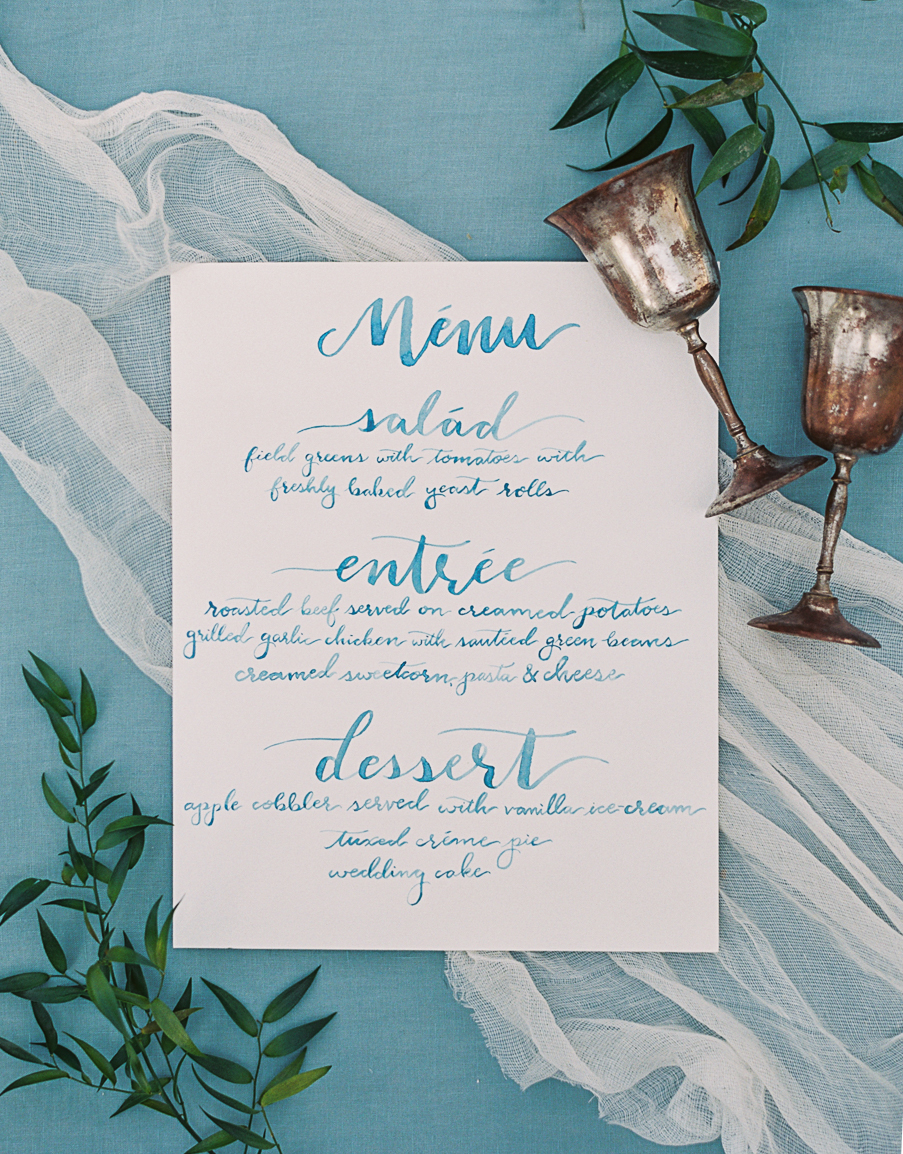 Ménu
salád
field greens with tomatoes with
freshly baked yeast rolls
entrée
roasted beef served on creamed potatoes
grilled garlic chicken with sautéed green beans
creamed sweetcorn, pasta & cheese
dessert
apple cobbler served with vanilla ice-cream
tuxed créme pie
wedding cake